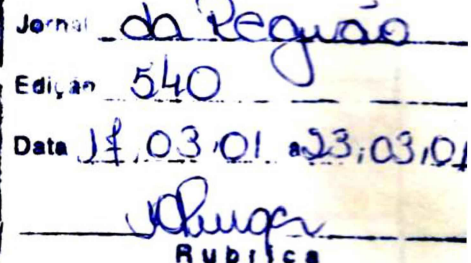 Jornal da Região
Edição 540
Data 17.03.01 a 23.03.01
Rubrica